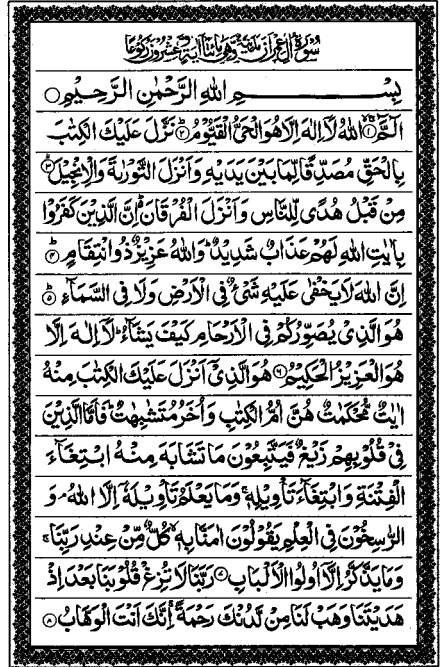 سُوْرَةُ اٰلِ عِمْرٰنَ مَدَنِيَّةٌ وَّهِيَ مِائَتَا اٰيَةٍ وَّعِشْرُوْنَ رُكُوْعًا
بِسْمِ اللهِ الرَّحْمٰنِ الرَّحِيْمِ
الٓمّٓ ۙ﴿۱﴾ اللهُ لَاۤ اِلٰهَ اِلَّا هُوَ الْحَيُّ الْقَيُّوْمُ ﴿۲﴾ نَزَّلَ عَلَيْكَ الْكِتٰبَ
بِالْحَقِّ مُصَدِّقًا لِّمَا بَيْنَ يَدَيْهِ وَاَنْزَلَ التَّوْرٰىةَ وَالْاِنْجِيْلَ ﴿۳﴾
مِنْ قَبْلُ هُدًى لِّلنَّاسِ وَاَنْزَلَ الْفُرْقَانَ ؕ اِنَّ الَّذِيْنَ كَفَرُوْا
بِاٰيٰتِ اللهِ لَهُمْ عَذَابٌ شَدِيْدٌ ؕ وَاللهُ عَزِيْزٌ ذُو انْتِقَامٍ ﴿۴﴾
اِنَّ اللهَ لَا يَخْفٰى عَلَيْهِ شَيْءٌ فِي الْاَرْضِ وَلَا فِي السَّمَآءِ ﴿۵﴾
هُوَ الَّذِيْ يُصَوِّرُكُمْ فِي الْاَرْحَامِ كَيْفَ يَشَآءُ ؕ لَاۤ اِلٰهَ اِلَّا
هُوَ الْعَزِيْزُ الْحَكِيْمُ ﴿۶﴾ هُوَ الَّذِيْۤ اَنْزَلَ عَلَيْكَ الْكِتٰبَ مِنْهُ
اٰيٰتٌ مُّحْكَمٰتٌ هُنَّ اُمُّ الْكِتٰبِ وَاُخَرُ مُتَشٰبِهٰتٌ ؕ فَاَمَّا الَّذِيْنَ
فِيْ قُلُوْبِهِمْ زَيْغٌ فَيَتَّبِعُوْنَ مَا تَشَابَهَ مِنْهُ ابْتِغَآءَ
الْفِتْنَةِ وَابْتِغَآءَ تَاْوِيْلِهٖ ۚ وَمَا يَعْلَمُ تَاْوِيْلَهٗۤ اِلَّا اللهُ ۘ وَ
الرّٰسِخُوْنَ فِي الْعِلْمِ يَقُوْلُوْنَ اٰمَنَّا بِهٖ ۙ كُلٌّ مِّنْ عِنْدِ رَبِّنَا ۚ
وَمَا يَذَّكَّرُ اِلَّاۤ اُولُوا الْاَلْبَابِ ﴿۷﴾ رَبَّنَا لَا تُزِغْ قُلُوْبَنَا بَعْدَ اِذْ
هَدَيْتَنَا وَهَبْ لَنَا مِنْ لَّدُنْكَ رَحْمَةً ۚ اِنَّكَ اَنْتَ الْوَهَّابُ ﴿۸﴾